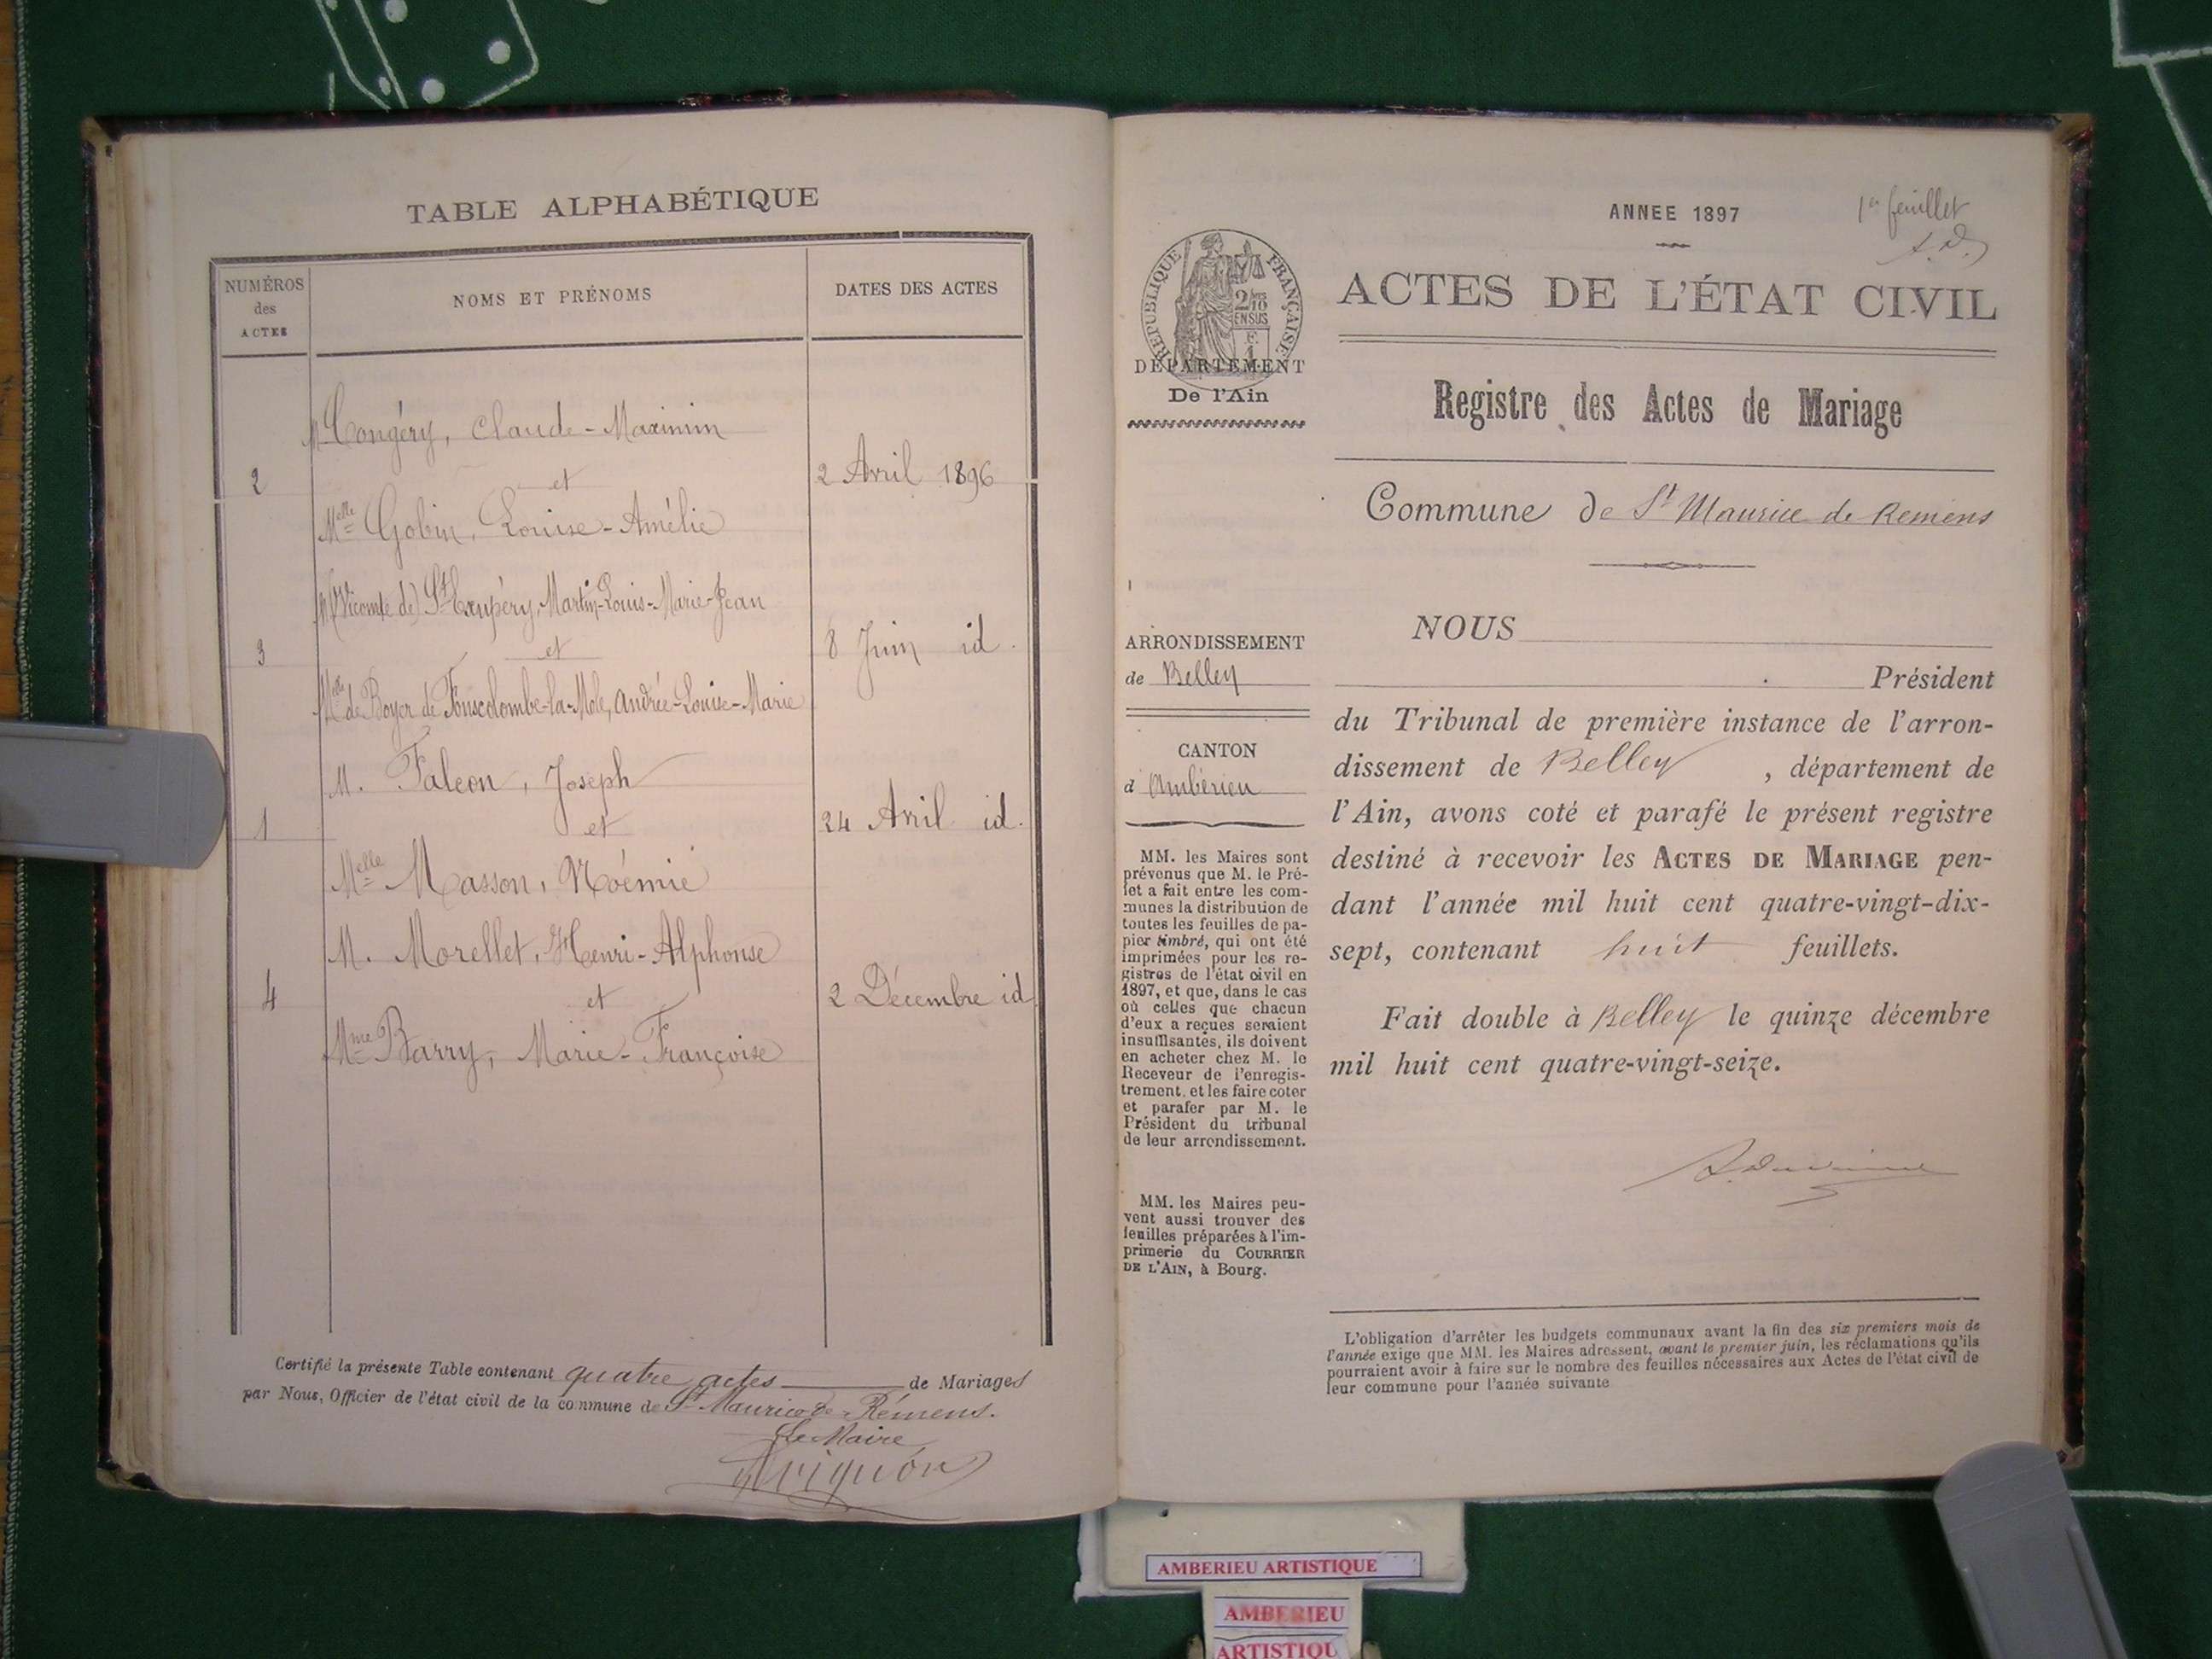 TABLE ALPHABÉTIQUE
NUMÉROS
des
ACTES
NOMS ET PRÉNOMS
DATES DES ACTES
M. Congéry, Claude-Maximin
2
et
2 Avril 1896
Melle Gobin, Louise-Amélie
M. (Vicomte de) St Exupéry, Martin-Louis-Marie-Jean
3
et
8 Juin id.
Melle de Boyer de Fonscolombe-la-Mole, Andrée-Louise-Marie
M. Falcon, Joseph
1
et
24 Avril id.
Melle Masson, Noémie
M. Morellet, Henri-Alphonse
4
et
2 Décembre id
Mme Barry, Marie-Françoise
Certifié la présente Table contenant quatre actes de Mariages
par Nous, Officier de l'état civil de la commune de St Maurice de Rémens.
Le Maire
ANNEE 1897
1er feuillet
ACTES DE L'ÉTAT CIVIL
Registre des Actes de Mariage
Commune de St Maurice de Remens
RÉPUBLIQUE FRANÇAISE
2/10
EN SUS
DÉPARTEMENT
De l'Ain
ARRONDISSEMENT
de Belley
CANTON
d'Ambérieu
MM. les Maires sont
prévenus que M. le Pré-
fet a fait entre les com-
munes la distribution de
toutes les feuilles de pa-
pier timbré, qui ont été
imprimées pour les re-
gistres de l'état civil en
1897, et que, dans le cas
où celles que chacun
d'eux a reçues seraient
insuffisantes, ils doivent
en acheter chez M. le
Receveur de l'enregis-
trement. et les faire coter
et parafer par M. le
Président du tribunal
de leur arrondissement.
MM. les Maires peu-
vent aussi trouver des
feuilles préparées à l'im-
primerie du COURRIER
DE L'AIN, à Bourg.
NOUS
Président
du Tribunal de première instance de l'arron-
dissement de Belley, département de
l'Ain, avons coté et parafé le présent registre
destiné à recevoir les ACTES DE MARIAGE pen-
dant l'année mil huit cent quatre-vingt-dix-
sept, contenant huit feuillets.
Fait double à Belley le quinze décembre
mil huit cent quatre-vingt-seize.
L'obligation d'arrêter les budgets communaux avant la fin des six premiers mois de
l'année exige que MM. les Maires adressent, avant le premier juin, les réclamations qu'ils
pourraient avoir à faire sur le nombre des feuilles nécessaires aux Actes de l'état civil de
leur commune pour l'année suivante
AMBERIEU ARTISTIQUE
AMBERIEU
ARTISTIQU